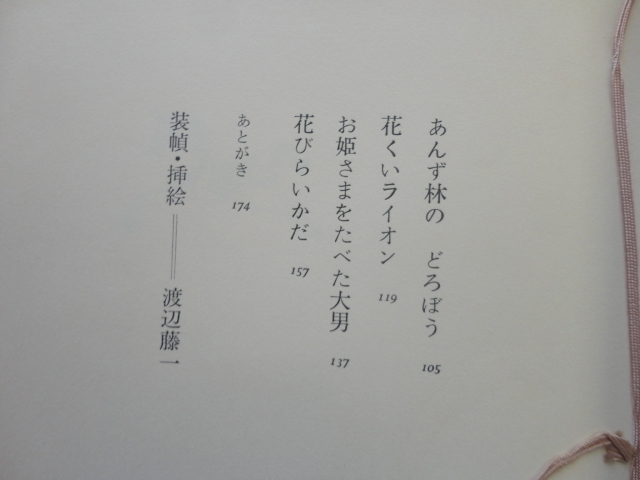 あんず林の　どろぼう 105
花くいライオン 119
お姫さまをたべた大男 137
花びらいかだ 157
あとがき 174
装幀・挿絵――渡辺藤一